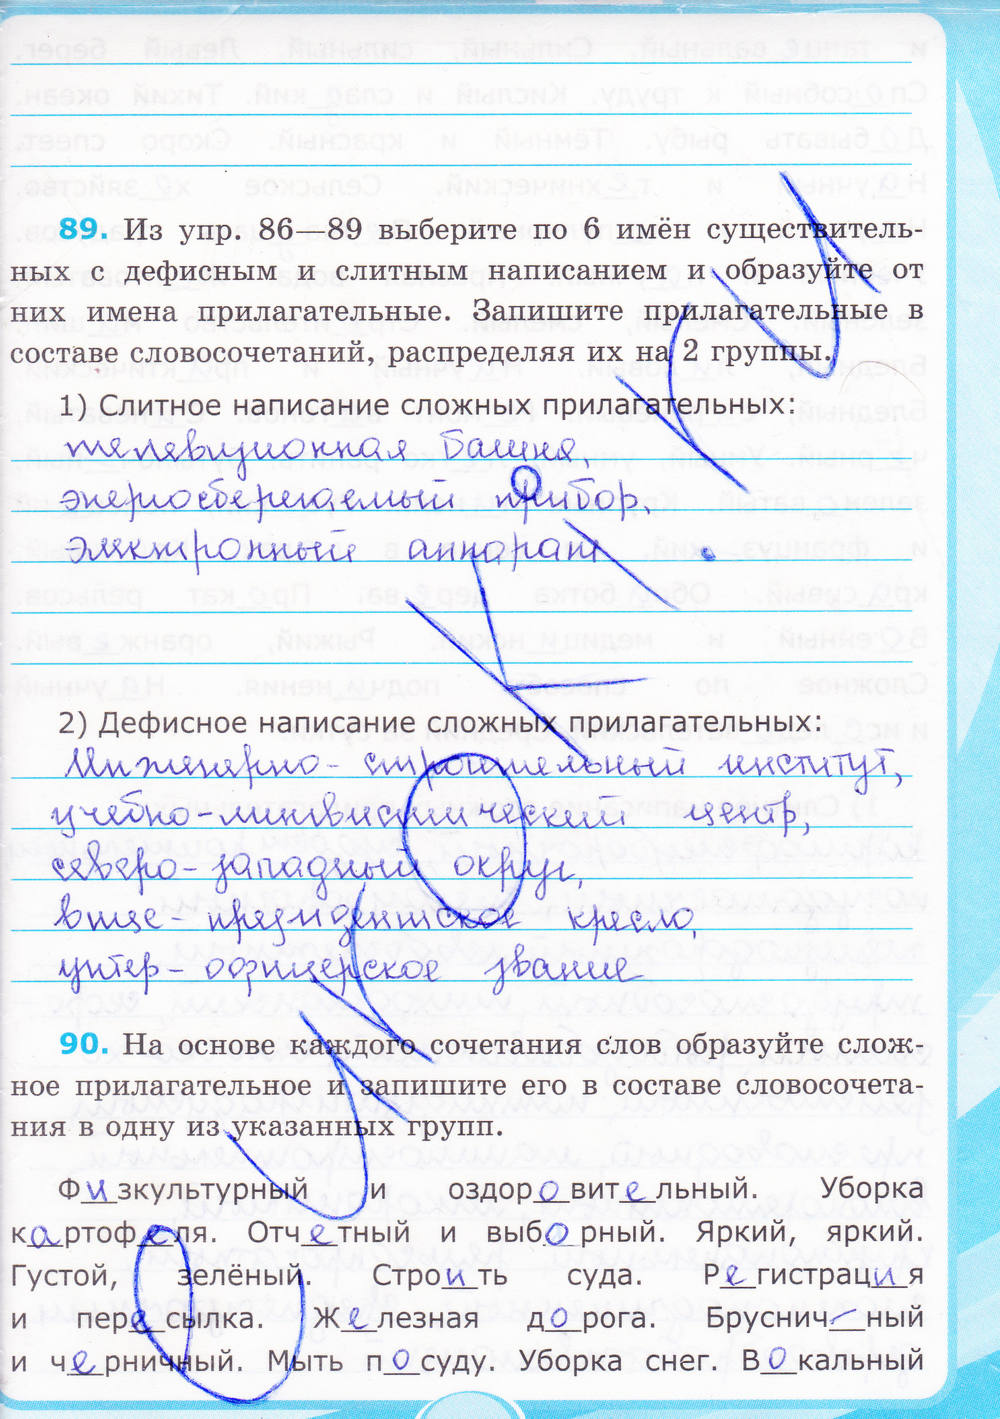 89. Из упр. 86—89 выберите по 6 имён существитель-
ных с дефисным и слитным написанием и образуйте от
них имена прилагательные. Запишите прилагательные в
составе словосочетаний, распределяя их на 2 группы.
1) Слитное написание сложных прилагательных:
телевизионная башня,
энергосберегаемый прибор,
электронный аппарат.
2) Дефисное написание сложных прилагательных:
Инженерно-строительный институт,
учебно-лингвистический центр,
северо-западный округ,
вице-президентское кресло,
унтер-офицерское звание
90. На основе каждого сочетания слов образуйте слож-
ное прилагательное и запишите его в составе словосочета-
ния в одну из указанных групп.
Физкультурный и оздоровительный. Уборка
картофеля. Отчетный и выборный. Яркий, яркий.
Густой, зелёный. Строить суда. Регистрация
и пересылка. Железная дорога. Бруснич-ный
и черничный. Мыть посуду. Уборка снег. Вокальный